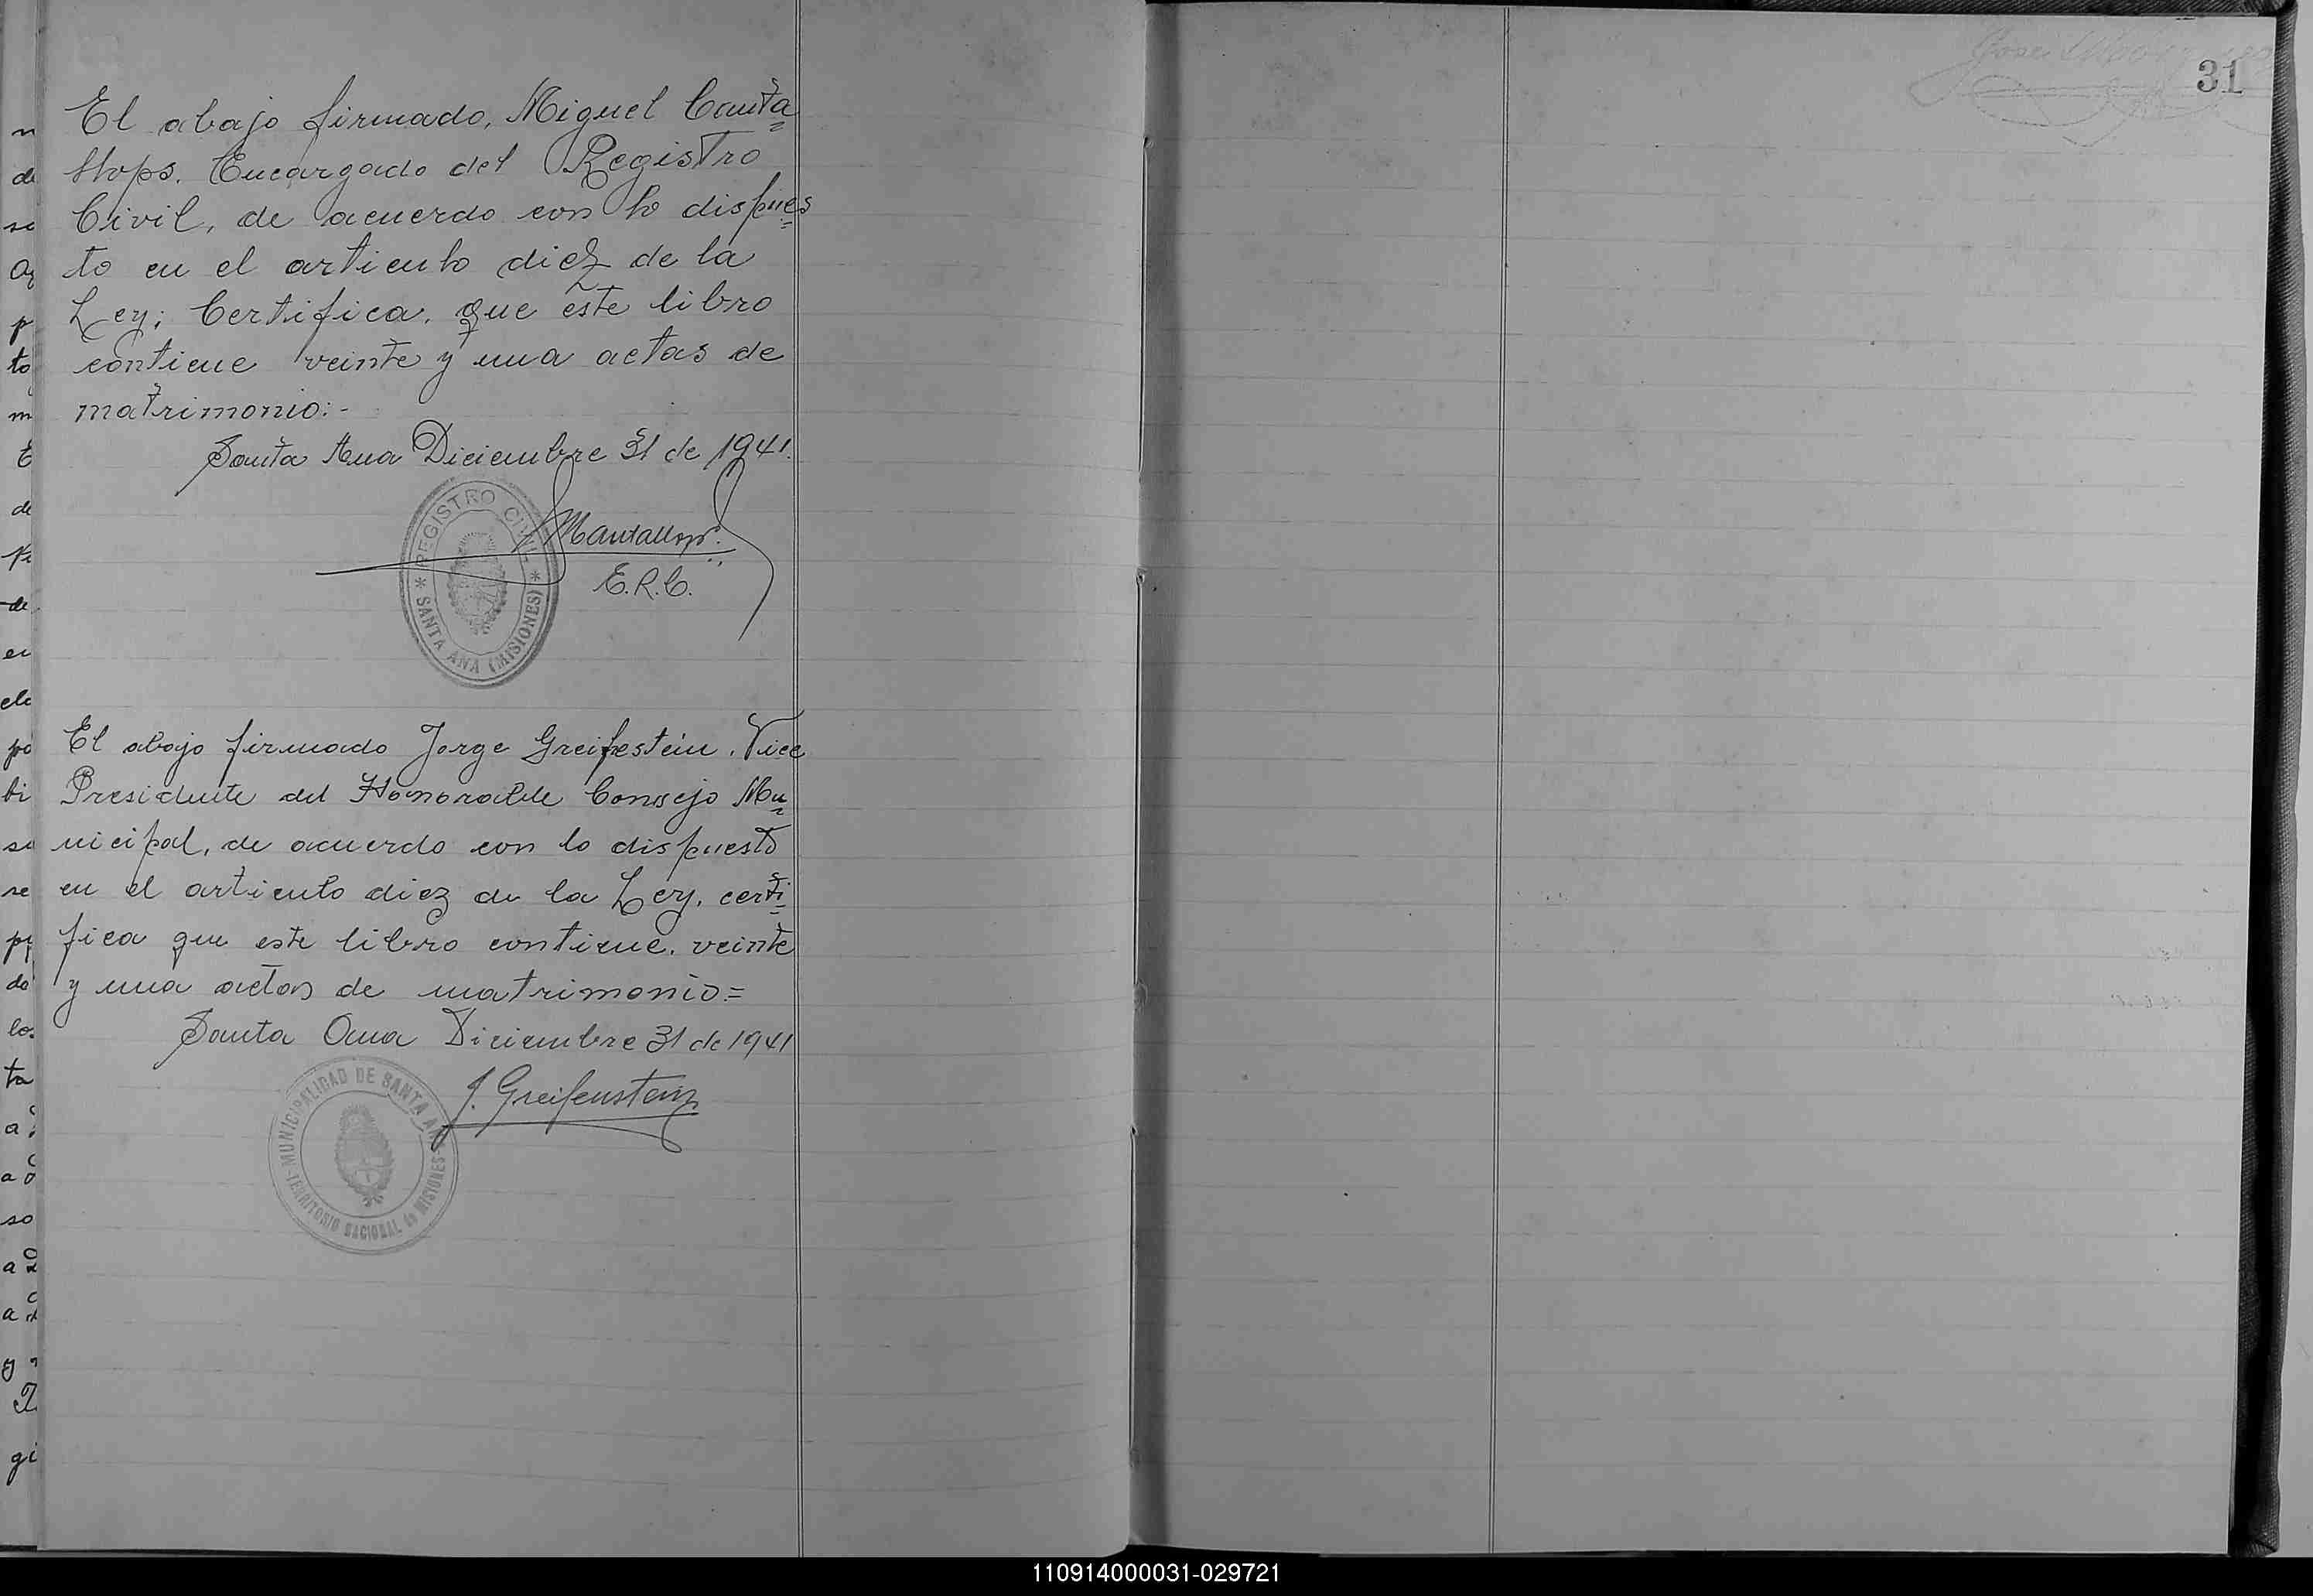 El abajo firmado, Miguel Canta
llops. Encargado del Registro
Civil, de acuerdo con lo dispues
to en el articulo diez de la
Ley; Certifica, que este libro
contiene veinte y una actas de
matrimonio:-
Santa Ana Diciembre 31 de 1941.
REGISTRO CIVIL
* SANTA ANA (MISIONES) *
MCantallops
E.R.C.
El abajo firmado Jorge Greifestein, Vice
Presidente del Honorable Consejo Mu
nicipal, de acuerdo con lo dispuesto
en el articulo diez de la Ley, certi
fica que este libro contiene, veinte
y una actas de matrimonio=
Santa Ana Diciembre 31 de 1941
J. Greifenstein
MUNICIPALIDAD DE SANTA ANA
TERRITORIO NACIONAL de MISIONES
31
110914000031-029721